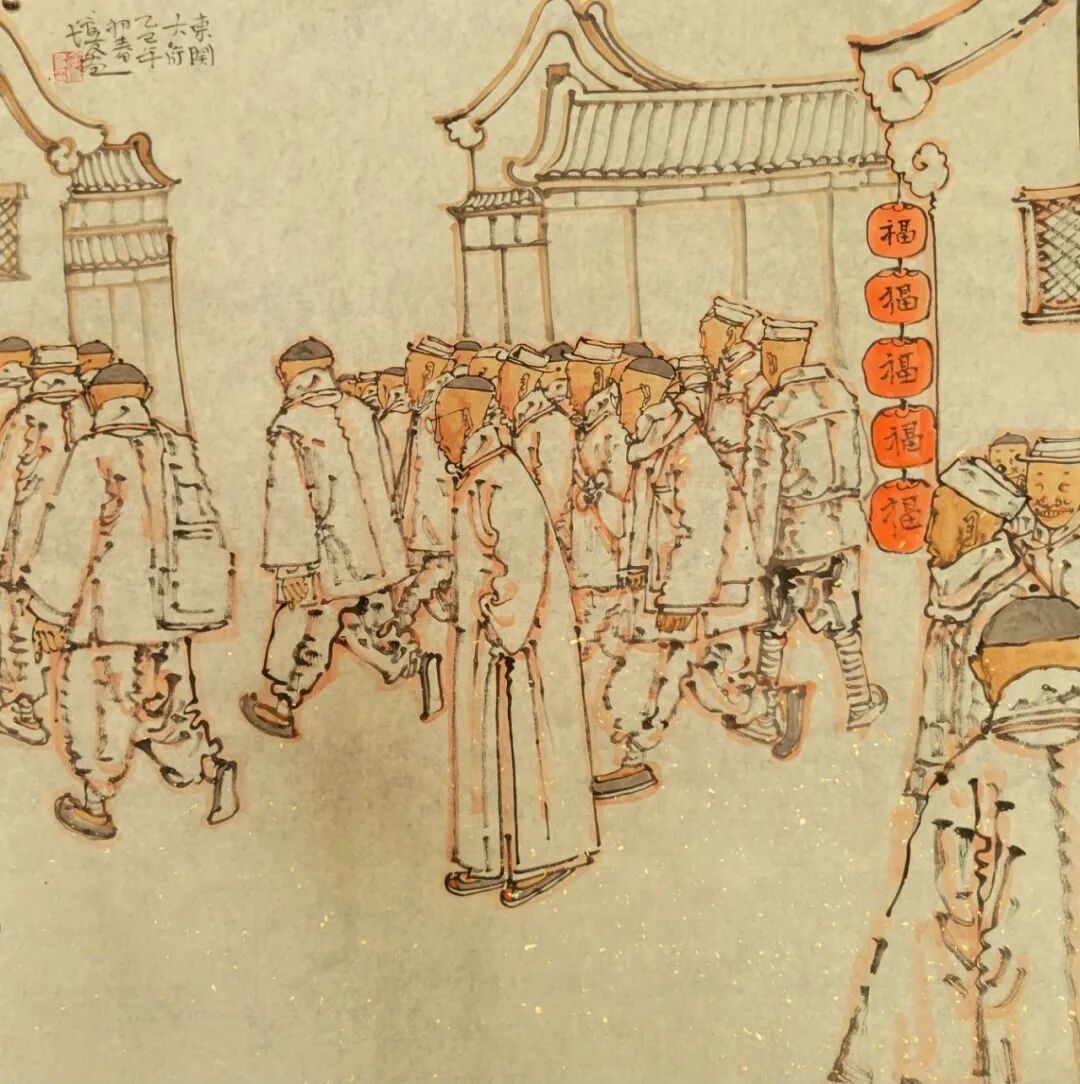 東関
大街
乙巳年
初春
福
福
福
福
福